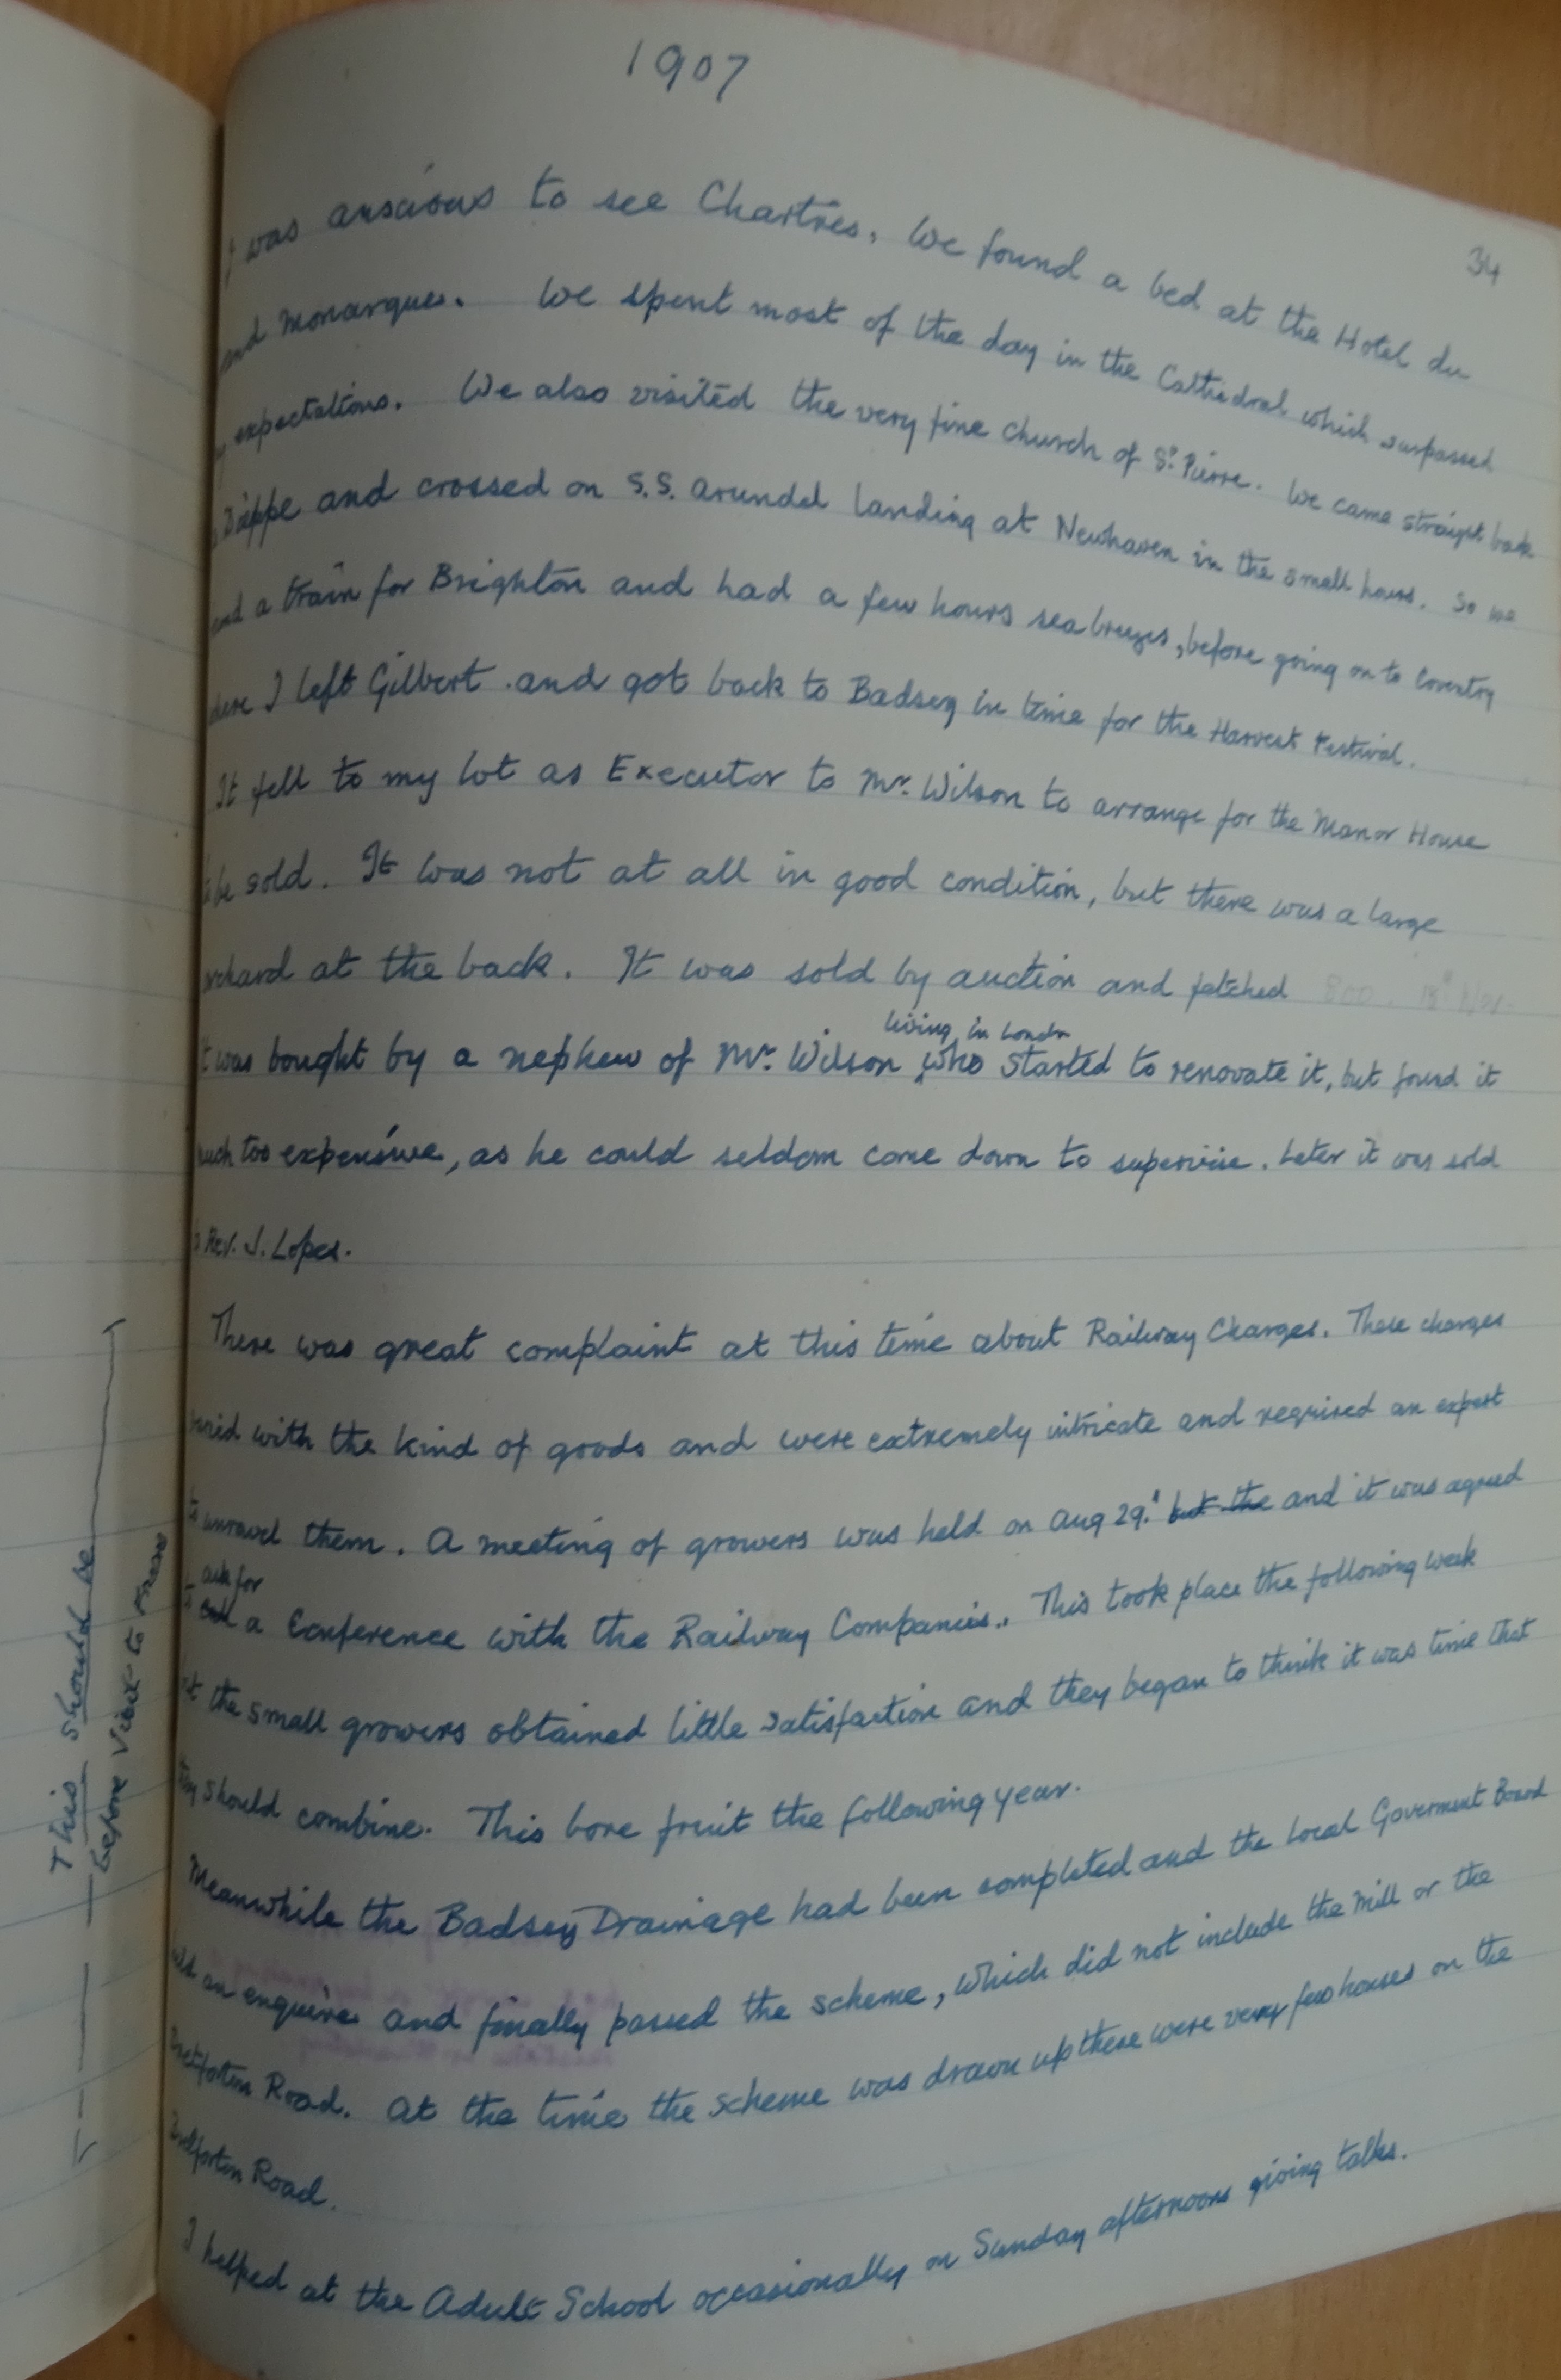 1907
34
I was anxious to see Chartres. We found a bed at the Hotel du
Monarques. We spent most of the day in the Cathedral which surpassed
expectations. We also visited the very fine church of St. Pierre. We came straight back
Dieppe and crossed on S.S. Arundel landing at Newhaven in the small hours. So we
a train for Brighton and had a few hours sea breezes, before going on to Coventry
where I left Gilbert and got back to Badsey in time for the Harvest Festival.
It fell to my lot as Executor to Mr. Wilson to arrange for the Manor House
to be sold. It was not at all in good condition, but there was a large
orchard at the back. It was sold by auction and fetched 800.
living in London
It was bought by a nephew of Mr. Wilson who started to renovate it, but found it
much too expensive, as he could seldom come down to supervise. Later it was sold
to Rev. J. Lopes.
There was great complaint at this time about Railway Charges. These charges
varied with the kind of goods and were extremely intricate and required an expert
to unravel them. A meeting of growers was held on Aug 29. but the and it was agreed
ask for
to call a Conference with the Railway Companies. This took place the following week
the small growers obtained little satisfaction and they began to think it was time that
they should combine. This bore fruit the following year.
Meanwhile the Badsey Drainage had been completed and the Local Goverment Board
held an enquire and finally passed the scheme, which did not include the Mill or the
Bretforton Road. At the time the scheme was drawn up there were very few houses on the
Bretforton Road.
I helped at the Adult School occasionally on Sunday afternoons giving talks.
This should be
before Visit to France